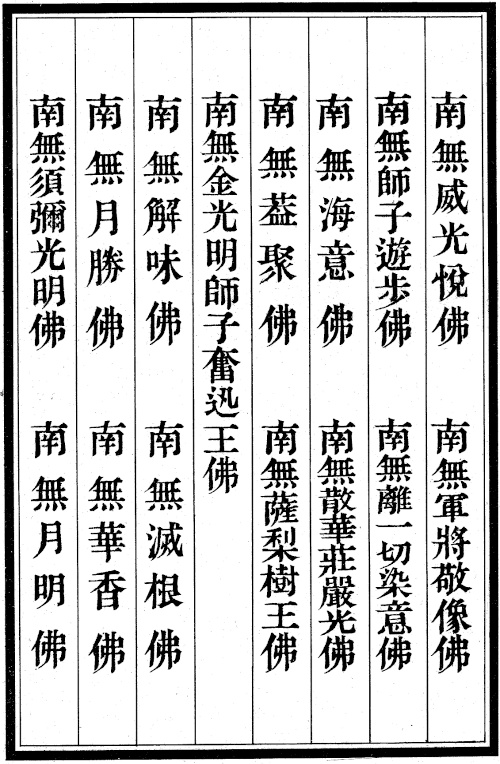 南無威光悅佛　南無軍將敬像佛
南無師子遊步佛　南無離一切染意佛
南無海意佛　南無散華莊嚴光佛
南無葢聚佛　南無薩梨樹王佛
南無金光明師子奮迅王佛
南無解味佛　南無滅根佛
南無月勝佛　南無華香佛
南無須彌光明佛　南無月明佛